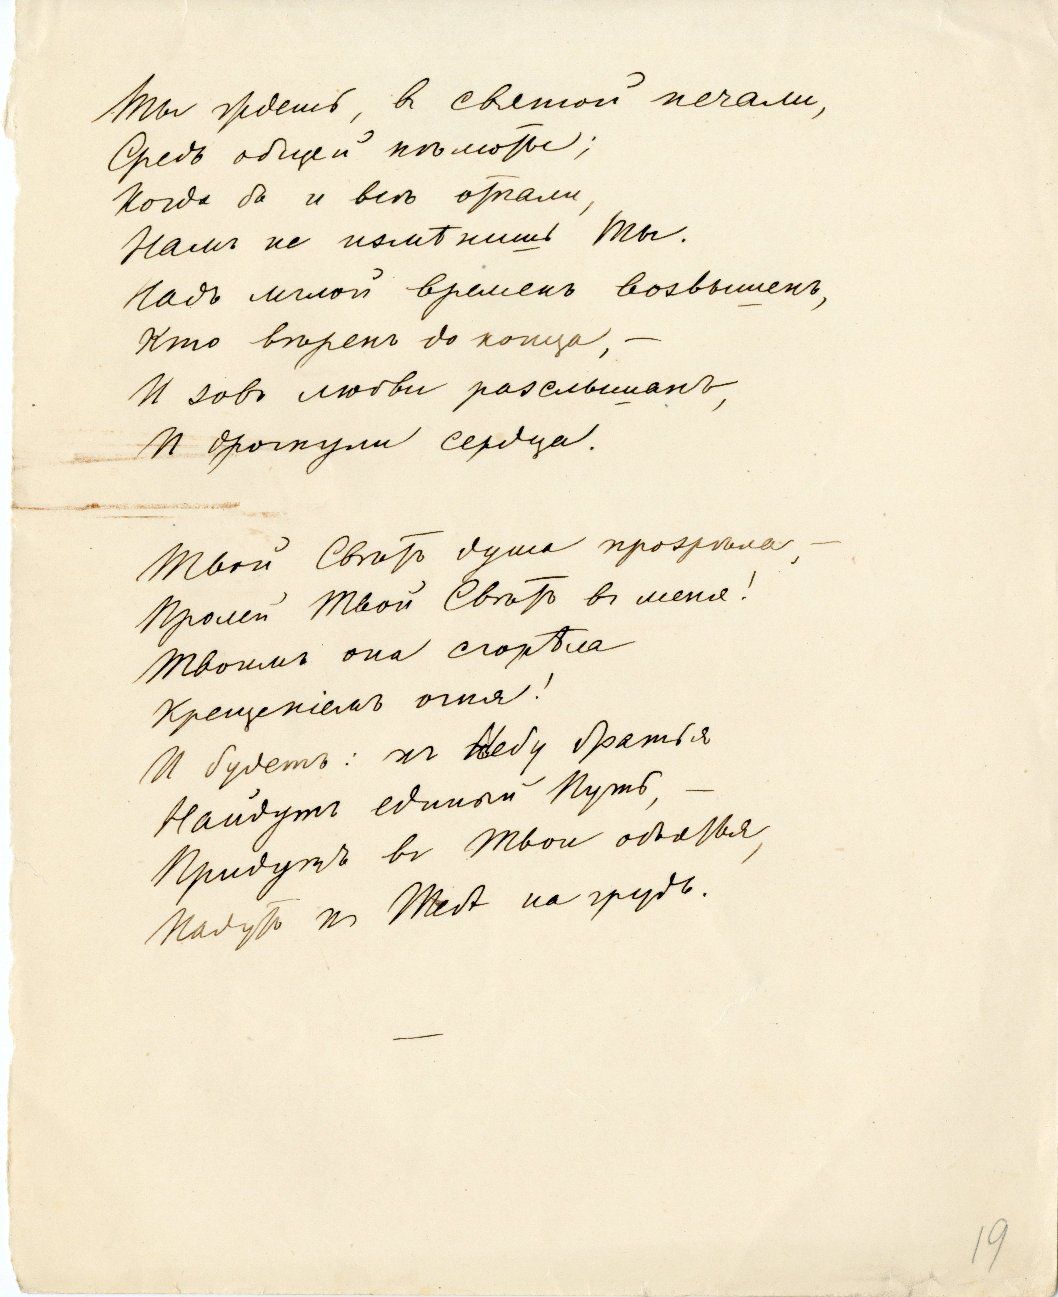 Ты ждешь, в святой печали,
Средь общей нѣмоты;
Когда бъ и всѣ отпали,
Намъ не измѣнишь Ты.
Надъ мглой временъ возвышенъ,
Кто вѣренъ до конца, —
И зовъ любви разслышанъ,
И дрогнули сердца.
Твой Свѣтъ душа прозрѣла, —
Пролей Твой Свѣтъ въ меня!
Твоимъ она сгорѣла
Крещеніемъ огня!
И будетъ: къ Небу братья
Найдутъ единый Путь, —
Придутъ въ Твои объятья,
Падутъ къ Тебѣ на грудь.
—
19